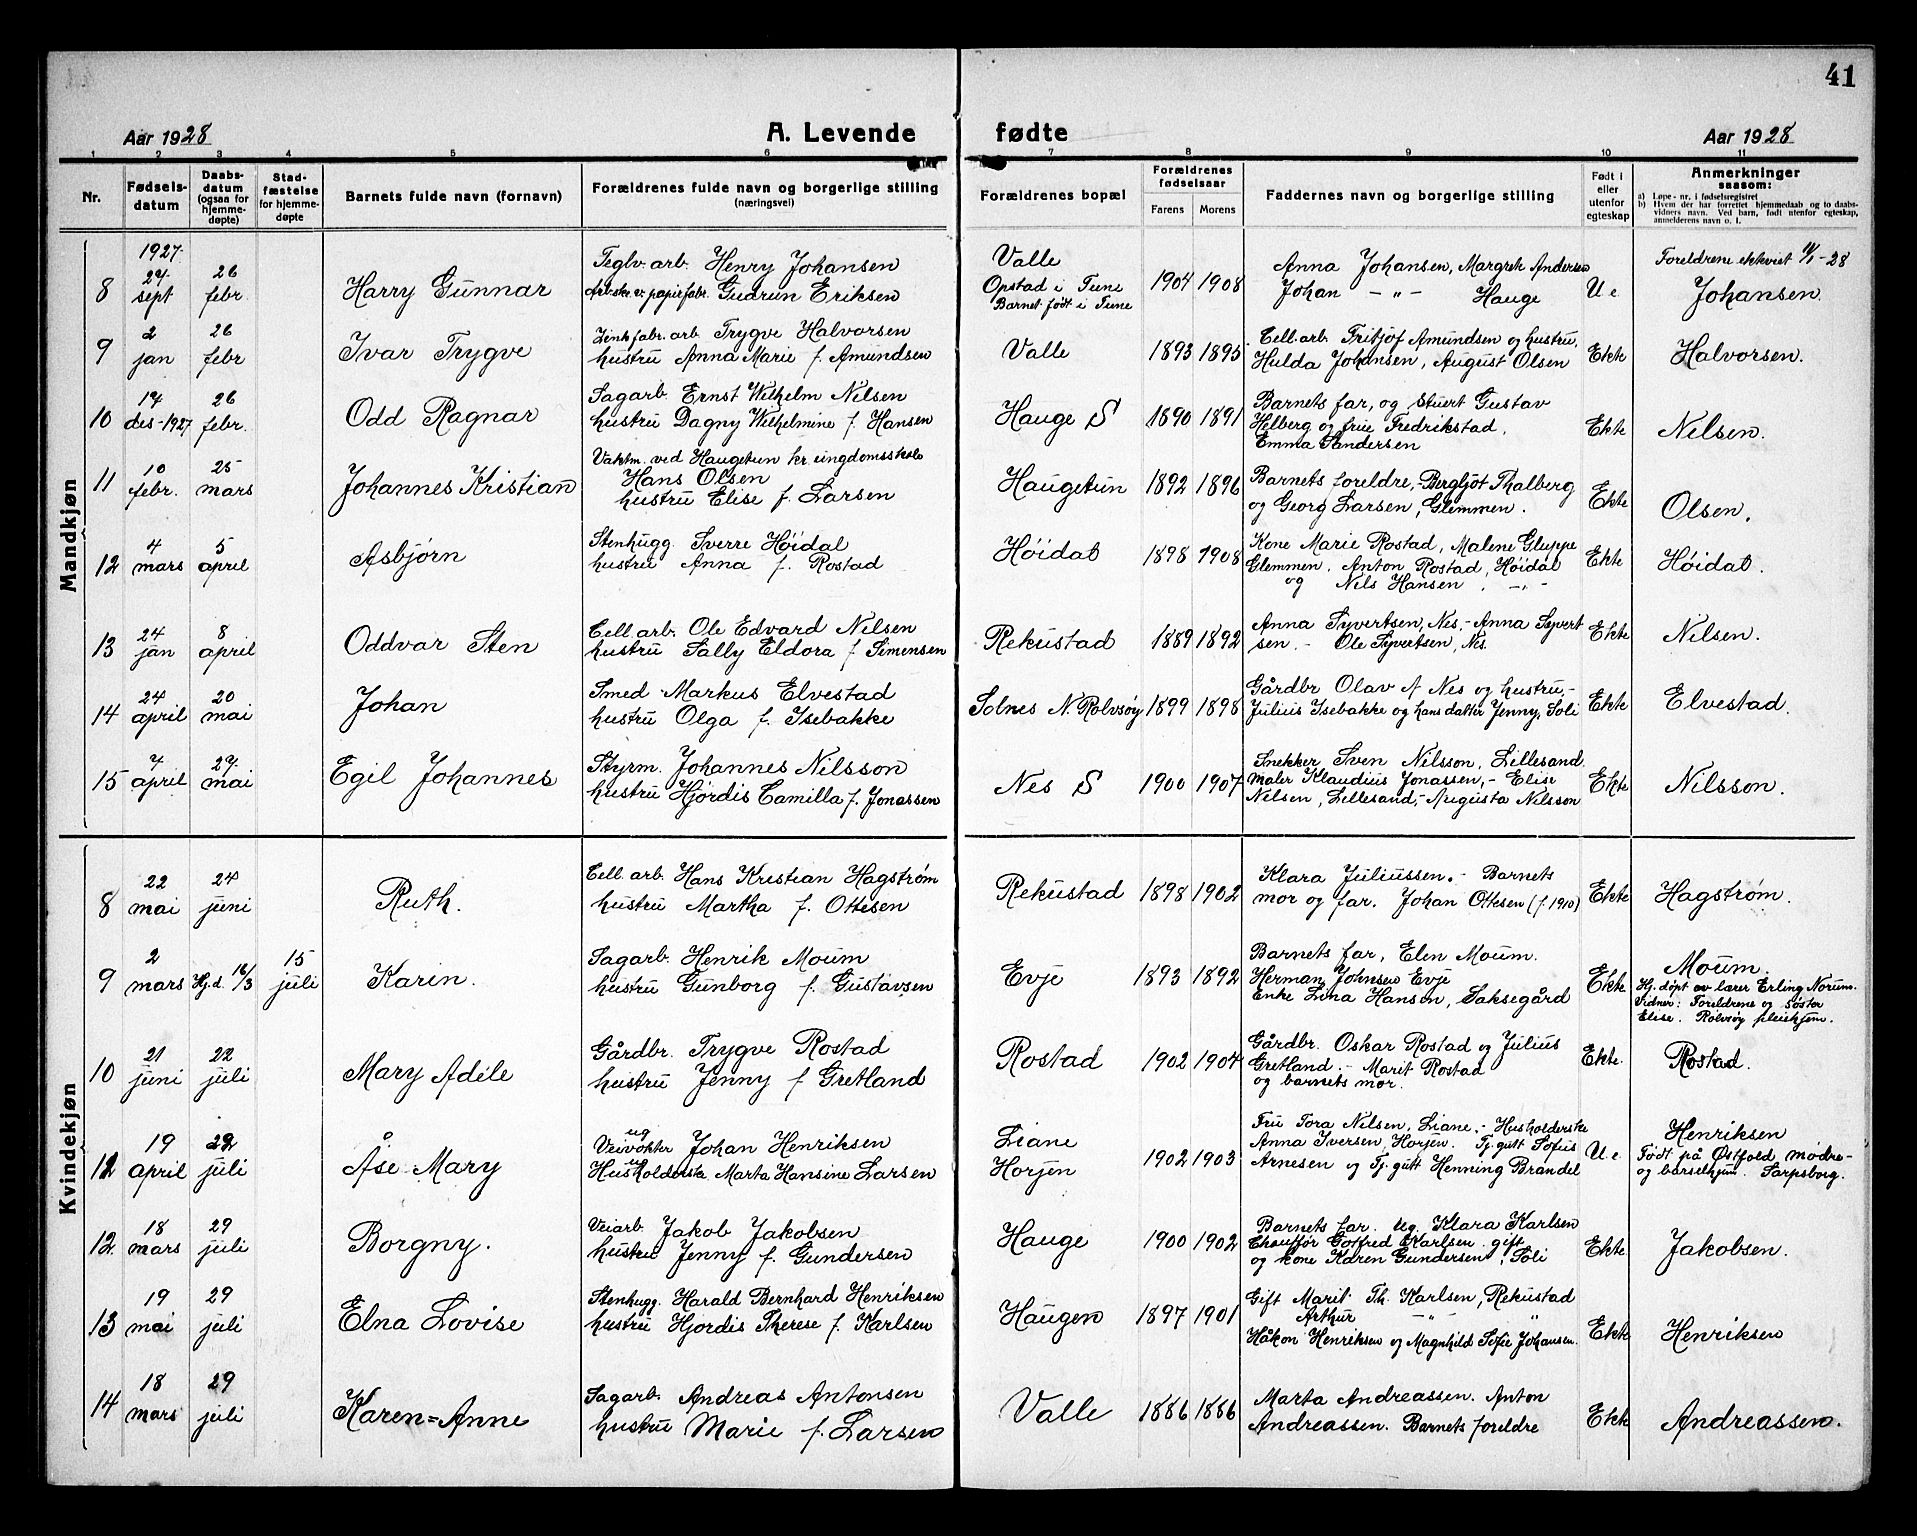 41
Aar 1928
A. Levende fødte
Aar 1928
1 2 3 4 5 6 7 8 9 10 11
Nr.
Fødsels-
datum
Daabs-
datum
(ogsaa for
hjemme-
døpte)
Stad-
fæstelse
for hjemme-
døpte
Barnets fulde navn (fornavn)
Forældrenes fulde navn og borgerlige stilling
(næringsvei)
Forældrenes bopæl
Forældrenes
fødselsaar
Farens Morens
Faddernes navn og borgerlige stilling
Født i
eller
utenfor
egteskap
Anmerkninger
saasom:
a) Løpe-nr. i fødselsregistret
b) Hvem der har forrettet hjemmedaab og to daabs-
vidners navn. Ved barn, født utenfor egteskap,
anmelderens navn o. l.
Mandkjøn
8
1927.
24.
sept
26
febr.
Harry Gunnar
Teglv. arb. Henry Johansen
Arb.ske v. papirfabr. Gudrun Eriksen
Valle
Opstad i Tune
Barnet født i Tune
1904 1908
Anna Johansen, Margrete Andersen
Johan — „ — Hauge
U e
Foreldrene ektevist 11/1-28
Johansen.
9
2
jan
26
febr
Ivar Trygve
Zinkfabr. arb. Trygve Halvorsen
hustru Anna Marie f. Amundsen
Valle
1893 1895
Cell. arb. Fritjof Amundsen og hustru,
Hulda Johansen, August Olsen
Ekte
Halvorsen.
10
14
des-1927
26
febr.
Odd Ragnar
Sagarb. Ernst Wilhelm Nilsen
hustru Dagny Wilhelmine f. Hansen
Hauge S
1890 1891
Barnets far, og stuert Gustav
Helberg og frue Fredrikstad,
Emma Sandersen
Ekte
Nilsen.
11
10
febr.
25
mars
Johannes Kristian
Vaktm. ved Haugetun kr. ungdomsskole
Hans Olsen
hustru Elise f. Larsen
Haugetun
1892 1896
Barnets foreldre, - Bergljot Thalberg
og Georg Larsen, Glemmen.
Ekte
Olsen.
12
4
mars
5
april
Asbjørn
Stenhugg. Sverre Høidal
hustru Anna f. Rostad
Høidal
1898 1908
Kone Marie Rostad, Malene Gluppe
Glemmen. Anton Rostad, Høidal
og Nils Hansen, - „ -
Ekte
Høidal.
13
24
jan
8
april
Oddvar Sten
Cell. arb. Ole Edvard Nilsen
hustru Sally Eldora f. Simensen
Rekustad
1889 1892
Anna Syvertsen, Nes, - Anna Syvert
sen. - Ole Syvertsen, Nes.
Ekte
Nilsen.
14
24
april
20
mai
Johan
Smed Markus Elvestad
hustru Olga f. Isebakke
Solnes N. Rolvsøy
1899 1898
Gårdbr Olav A Nes og hustru, -
Julius Isebakke og hans datter Jenny, Soli
Ekte
Elvestad.
15
7
april
27.
mai
Egil Johannes
Styrm. Johannes Nilsson
hustru Hjørdis Camilla f. Jonassen
Nes S
1900 1907
Snekker Sven Nilsson, Lillesand.
Maler Klaudius Jonassen, - Elise
Nelsen, Lillesand, - Augusta Nilsson
Ekte
Nilsson.
Kvindekjøn
8
22
mai
24
juni
Ruth.
Cell. arb. Hans Kristian Hagstrøm
hustru Martha f. Ottesen
Rekustad
1898 1902
Klara Juliussen. - Barnets
mor og far. Johan Ottesen (f. 1910)
Ekte
Hagstrøm.
9
2
mars
Hj.d. 16/3
15
juli
Karin.
Sagarb. Henrik Moum
hustru Gunborg f. Gustavsen
Evje
1893 1892
Barnets far, Elen Moum.
Herman Johnsen Evje
Enke Lina Hansen, Saksegård
Ekte
Moum.
Hj. døpt av lærer Erling Norum.
Vidner: Foreldrene og søster
Elise. Rolvsøy pleiehjem.
10
21
juni
22
juli
Mary Adele
Gårdbr. Trygve Rostad
hustru Jenny f. Gretland
Rostad
1902 1904
Gårdbr. Oskar Rostad og Julius
Gretland. - Marit Rostad
og barnets mor.
Ekte.
Rostad.
12
19
april
22
juli
Åse Mary
ug
Veivokter Johan Henriksen
Husholderske Marta Hansine Larsen
Liane
Horjen
1902 1903
Fru Tora Nilsen, Liane, - Husholderske
Anna Iversen, Horjen. Tj. gutt Sofus
Arnesen og Tj. gutt Henning Brandel
U e
Henriksen
Født på Østfold mødre-
og barselhjem. Sarpsborg.
12.
18
mars
29
juli
Borgny.
Veiarb. Jakob Jakobsen
hustru Jenny f. Gundersen
Hauge
1900 1902
Barnets far. Ug. Klara Karlsen
Chauffør Gotfred Karlsen. gift
og kone Karen Gundersen, Soli
Ekte
Jakobsen.
13
19
mai
29
juli
Elna Lovise
Stenhugg. Harald Bernhard Henriksen
hustru Hjordis Therese f. Karlsen
Haugen
1897 1901
Gift Marit Th. Karlsen, Rekustad
Arthur - „ - „
Håkon Henriksen og Magnhild Sofie Johansen.
Ekte
Henriksen
14
18
mars
29
juli
Karen=Anne
Sagarb. Andreas Antonsen
hustru Marie f. Larsen
Valle
1886 1886
Marta Andreassen. Anton
Andreassen. Barnets foreldre
Ekte
Andreassen.